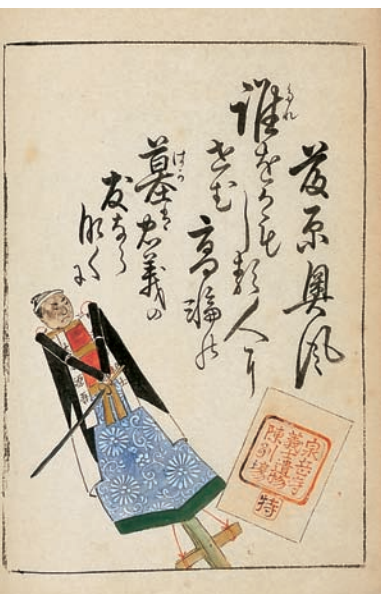 藤原奥風
誰をかもしる人に
せむ高輪の
墓も忠義の
友なら
なくに
泉岳寺
義士遺物
陳列場
特